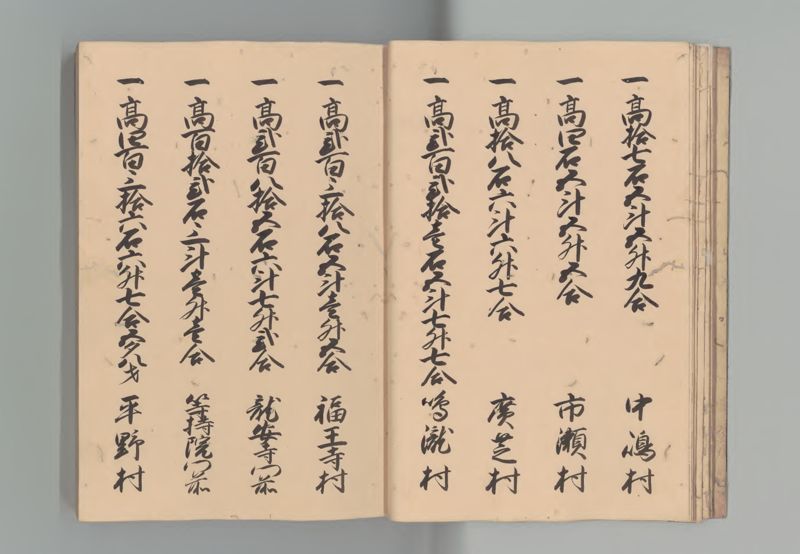 一高拾七石五斗五升九合 中嶋村
一高四石五斗五升五合 市瀬村
一高拾八石六斗六升七合 廣芝村
一高弐百弐拾壱石五斗七升七合 鳴瀧村
一高弐百三拾八石五斗壱升五合 福王寺村
一高弐百八拾五石六斗七升弐合 龍安寺門前
一高百拾弐石三斗壱升壱合 等持院門前
一高四百三拾六石六升七合五夕八才 平野村